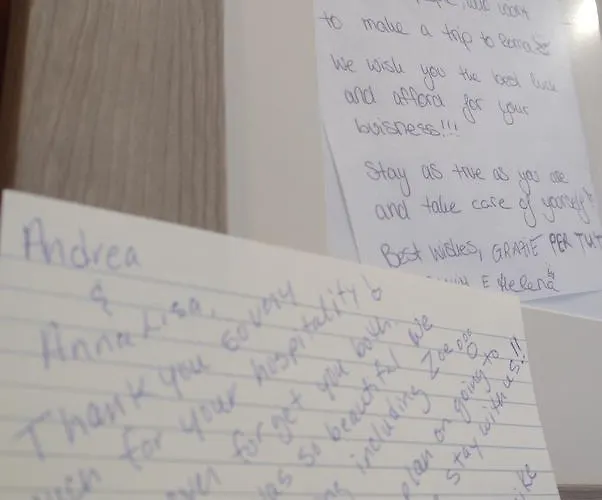 want
to make a trip to
We wish you the best luck
and afford for your
buisness!!!
Stay as true as you are
and take care of yourself
Best wishes, GRAZIE PER TUT
E Helena
Andrea
&
Anna Lisa,
Thank you so very
for your hospitality
forget you both.
so beautiful we
including Zoe
plan on going to
stay with us!!